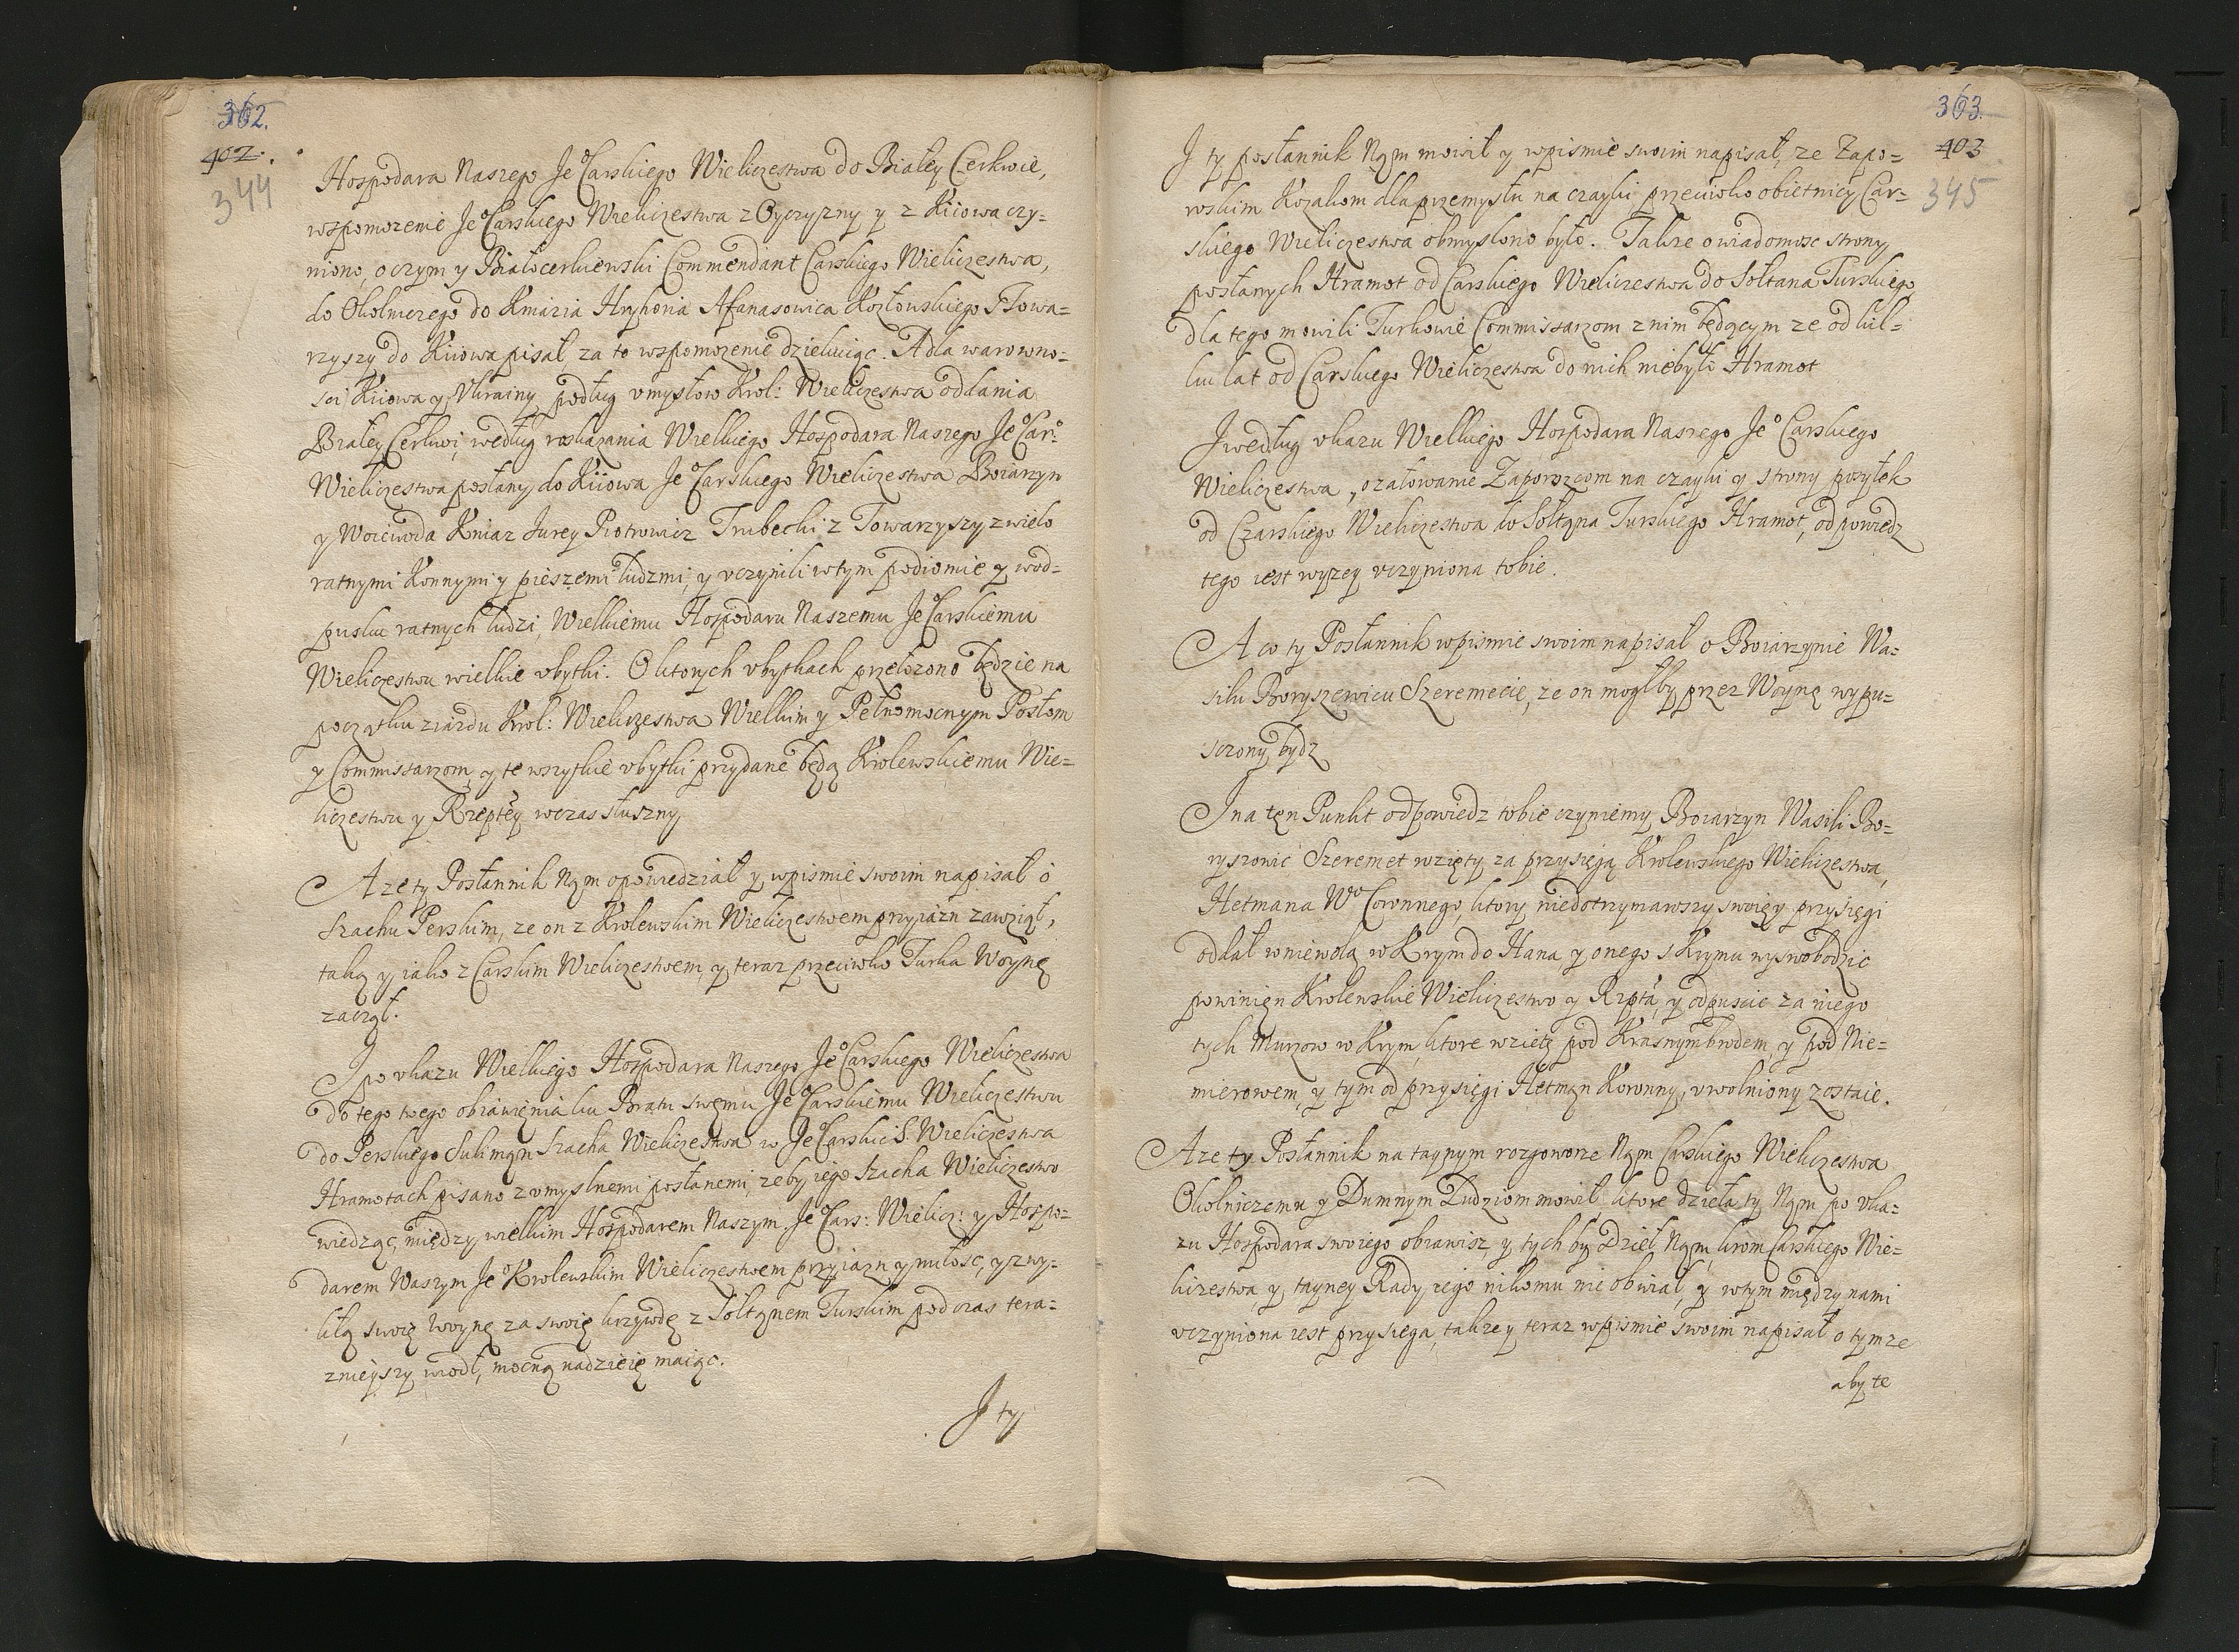 362.
402.
344
Hospodara Naszego Jeº Carskiego Wieliczestwa do Białey Cerkwie,
wspomozenie Jeº Carskiego Wieliczestwa z Oyczyzny y z Kiiowa czy=
niono, o czym y Białocerkiewski Commendant Carskiego Wieliczestwa,
do Okolniczego do Kniazia Hryhoria Afanasowica Kozłowskiego s Towa=
rzyszy do Kiiowa pisał za to wspomozenie dziekuiąc. A dla warowno=
sci Kiiowa y Ukrainy podług vmysłow Krol: Wieliczestwa oddania
Białey Cerkwi, według roskazania Wielkiego Hospodara Naszego Jeº Carº
Wieliczestwa posłany do Kiiowa Jeº Carskiego Wieliczestwa Boiarzyn
y Woiewoda Kniaz Jurey Piotrowicz Trubecki z Towarzyszy z wielo
ratnymi Konnymi y pieszemi ludzmi, y vczynili w tym podiomie y w od=
pusku ratnych ludzi, Wielkiemu Hospodaru Naszemu Jeº Carskiemu
Wieliczestwu wielkie vbytki. O ktorych vbytkach przełozono będzie na
początku ziazdu Krol: Wieliczestwa Wielkim y Pełnomocnym Posłom
y Commissarzom, y te wszytkie vbytki przydane będą Krolewskiemu Wie=
liczestwu y Rzeptey w czas słuszny
A ze ty Posłannik Nąm opowiedział y w pismie swoim napisał o
Szachu Perskim, ze on z Krolewskim Wieliczestwem przyiazn zawziął,
taką y iako z Carskim Wieliczestwem, y teraz przeciwko Turka Woynę
zaczął.
J po vkazu Wielkiego Hospodara Naszego Jeº Carskiego Wieliczestwa
do tego twego obiawięnia ku Bratu swęmu Jeº Carskiemu Wieliczestwu
do Perskiego Sulimąn Szacha Wieliczestwa w Jeº Carskieº S. Wieliczestwa
Hramotach pisano z vmyslnemi posłanemi, zeby iego Szacha Wieliczestwo
wiedząc, między wielkim Hospodarem Naszym, Jeº Cars: Wielicz: y Hospo=
darem Waszym Jeº Krolewskim Wieliczestwem przyiazn y miłosc, y zwy=
kłą swoię Woynę za swoię krzywdę z Sołtąnem Turskim pod czas tera=
znieyszy wiodł, mocną nadzieię maiąc.
J ty
363.
403
345
J ty posłannik Nąm mowił y w pismie swoim napisał, ze Zapo=
roskim Kozakom dla przemysłu na czayki przeciwko obietnicy Car=
skiego Wieliczestwa obmyslono było. Takze o wiadomosc strony
posłanych Hramot od Carskiego Wieliczestwa do Sołtana Turskiego
dla tego mowili Turkowie Commissarzom z nim będącym ze od kil=
ku lat od Carskiego Wieliczestwa do nich niebyło Hramot
J według vkazu Wielkiego Hospodara Naszego Jeº Carskiego
Wieliczestwa, o załowanie Zaporozcom na czayki y strony posyłek
od Czarskiego Wieliczestwa do Sołtąna Turskiego Hramot, odpowiedz
tego iest wyzey vczyniona tobie.
A co ty Posłannik w pismie swoim napisał o Boiarzynie Wa=
silu Boryszewicu Szeremecie, ze on mogłby przez Woynę wypu=
sczony bydz
J na tęn Punkt odpowiedz tobie czyniemy Boiarzyn Wasili Bo=
ryszowic Szeremet wzięty za przysięgą Krolewskiego Wieliczestwa,
Hetmana Wº Coronnego, ktory niedotrzymawszy swoięy przysięgi
oddał w niewolą w Krym do Hana y onego s Krymu wyswobodzic
powinięn Krolewskie Wieliczestwo y Rzpta, y odpuscic za niego
tych Murzow w Krym, ktore wzietę pod Krasnymbrodem, y pod Nie=
mierowem, y tym od przysięgi Hetmąn Koronny, vwolniony zostaie.
A ze ty Posłannik na taynym rozgoworze Nąm Carskiego Wieliczestwa
Okolniczemu y Dumnym Ludziom mowił, ktore dzieła ty Nąm po vka=
zu Hospodara swoiego obiawisz, y tych by dzieł Nąm krom Carskiego Wie=
liczestwa, y tayney Rady iego nikomu nie obiwiał, y w tym między nami
vczyniona iest przysięga, takze y teraz w pismie swoim napisał o tym ze
aby te